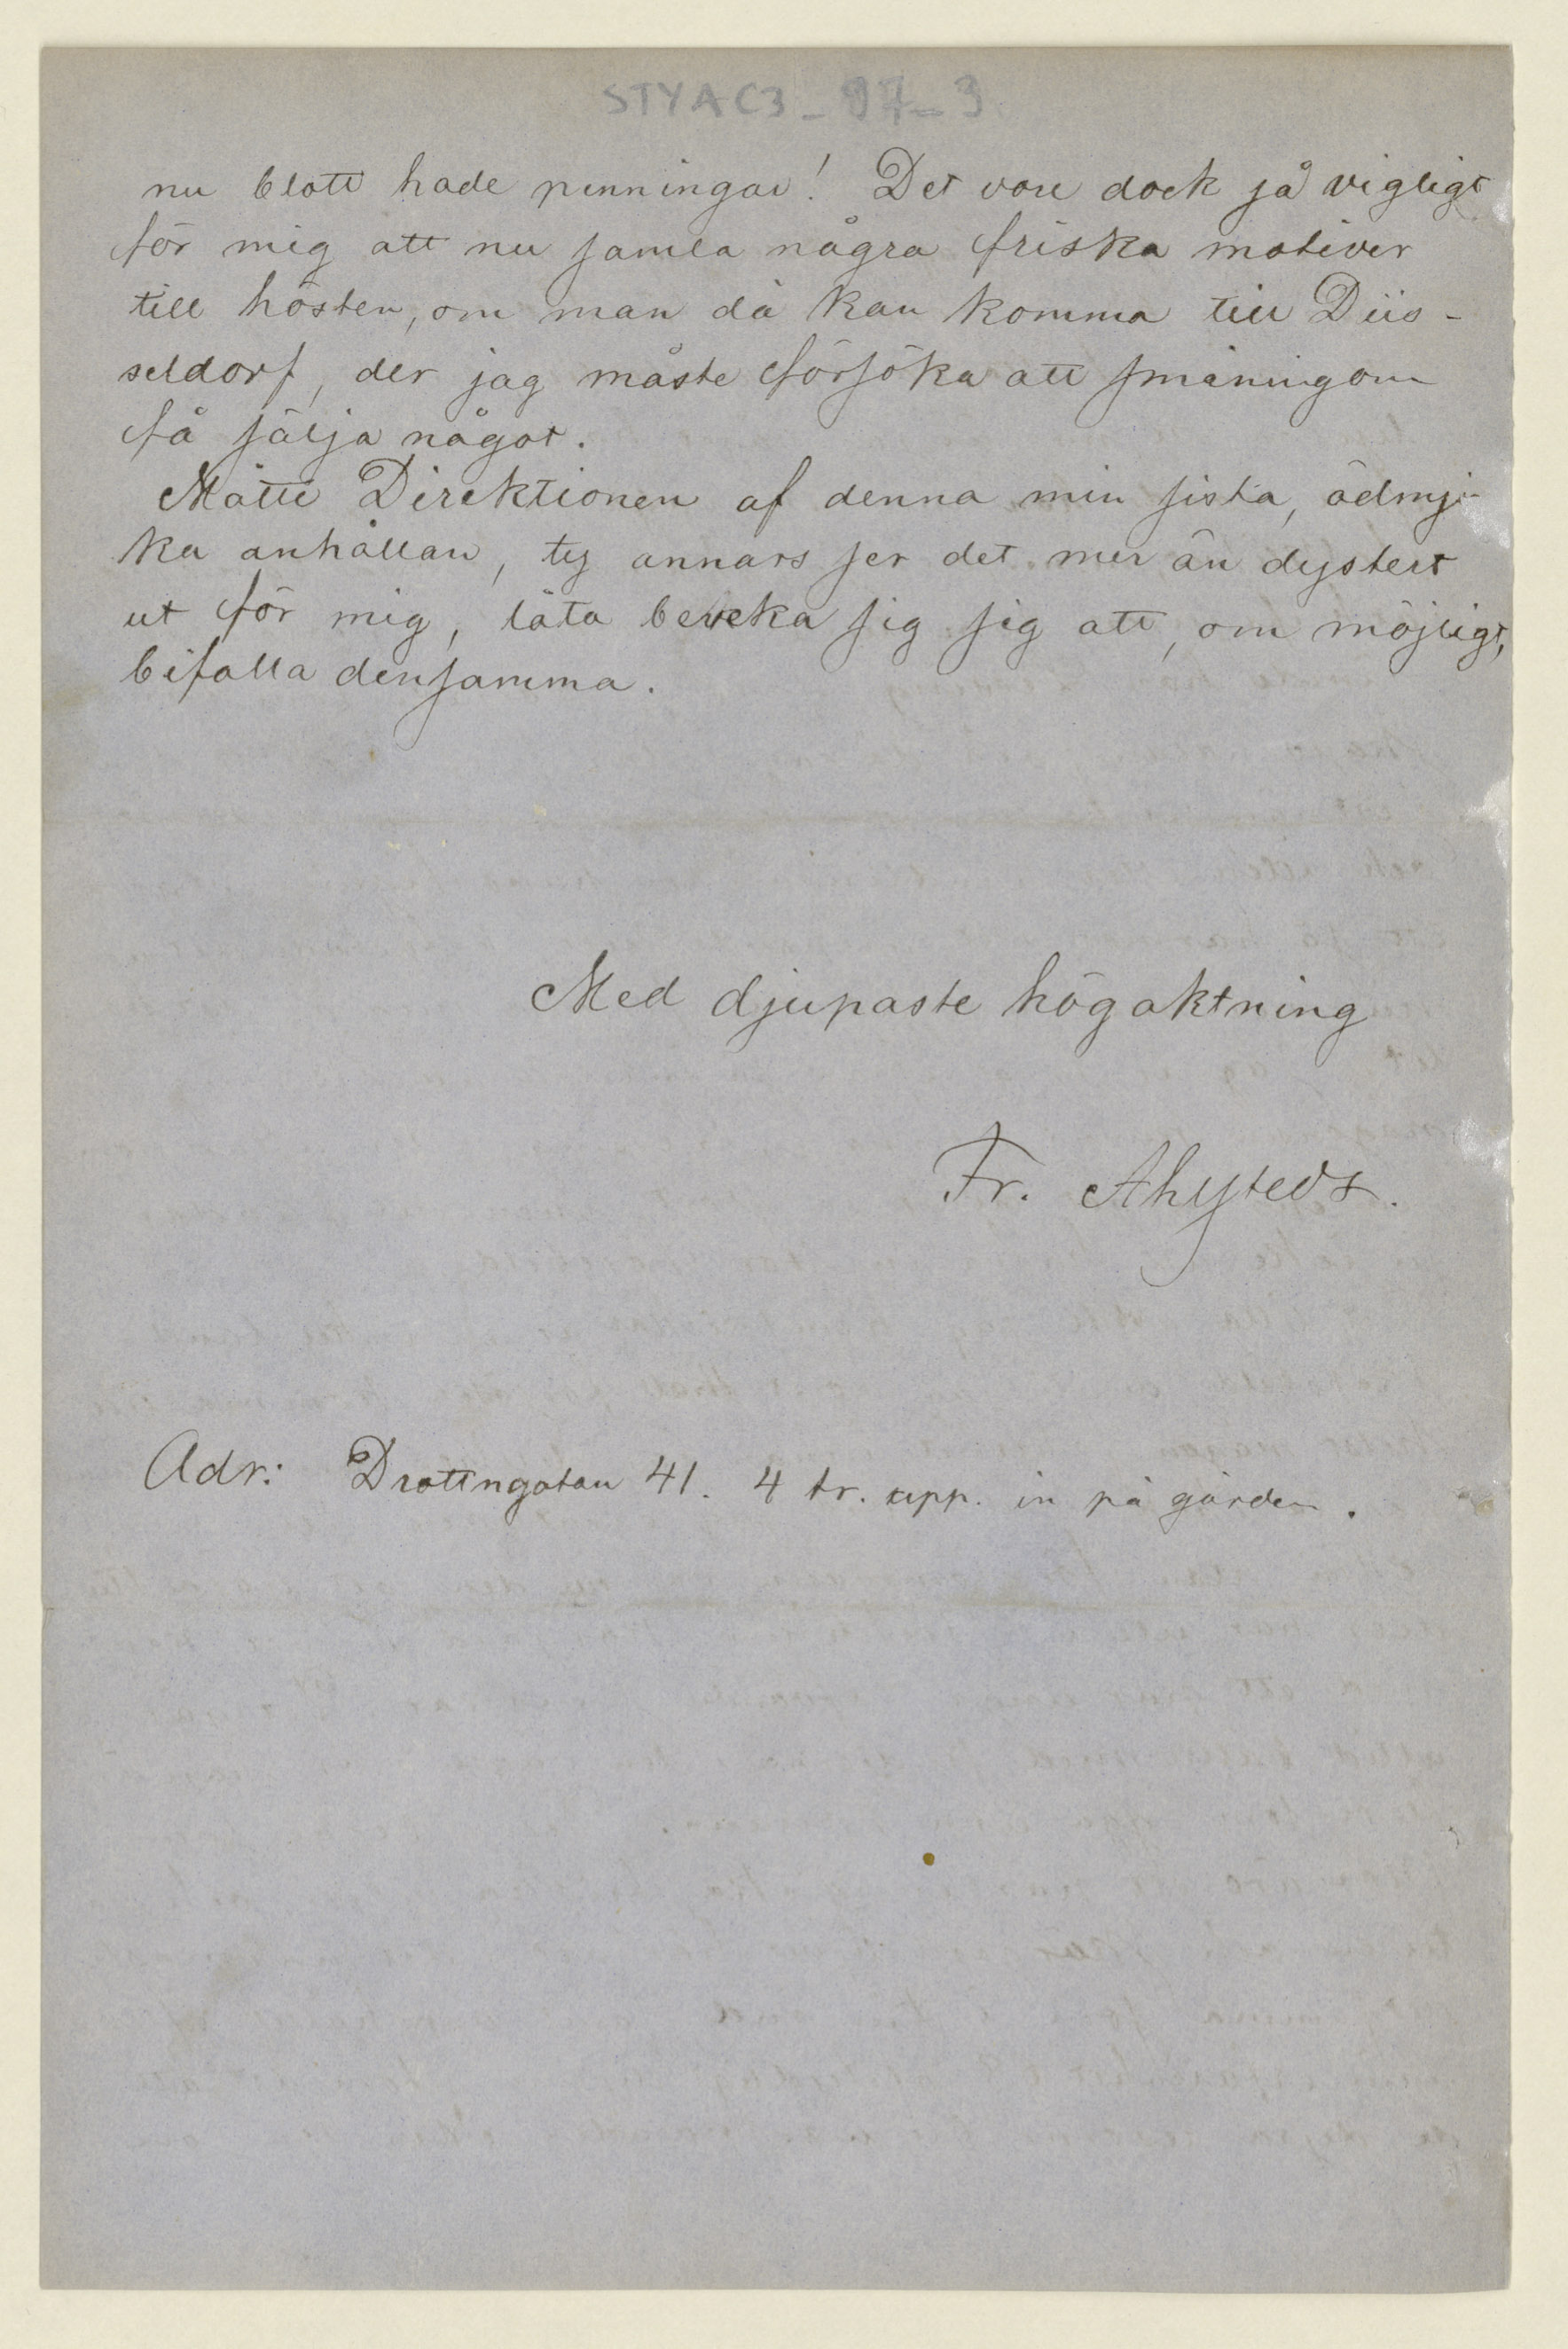 STYA C3 _ 97 _ 3
nu blott hade penningar! Det vore dock så vigtigt
för mig att nu samla några friska motiver
till hösten, om man då kan komma till Düs-
seldorf, der jag måste försöka att småningom
få sälja något.
Måtte Direktionen af denna min sista, ödmju-
ka anhållan, ty annars ser det mer än dystert
ut för mig, låta beveka sig sig att, om möjligt,
bifalla densamma.
Med djupaste högaktning
Fr. Ahlgstedt.
Adr: Drottngatan 41. 4 tr. upp. in på gården.